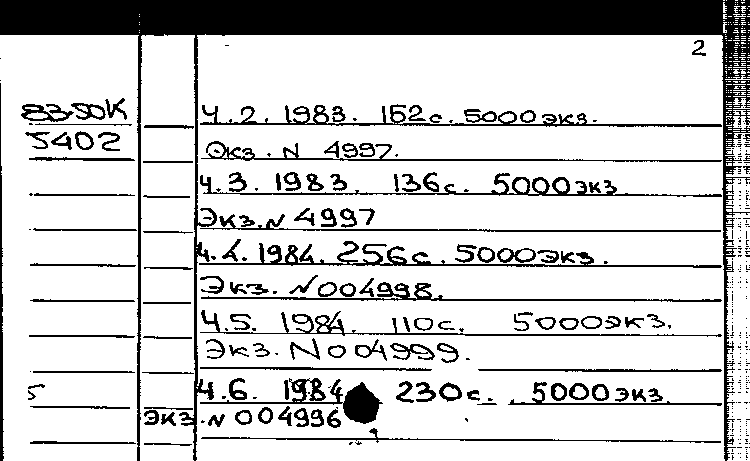 2
83-50К
5402
Ч.2. 1983. 152с. 5000экз.
Экз. N 4997.
Ч.3. 1983. 136с. 5000экз
Экз. N 4997
Ч.4. 1984. 256с. 5000экз.
Экз. N004998.
Ч.5. 1984. 110с. 5000экз.
Экз. N004999.
Ч.6. 1984 230с. 5000экз.
Экз. N 004996